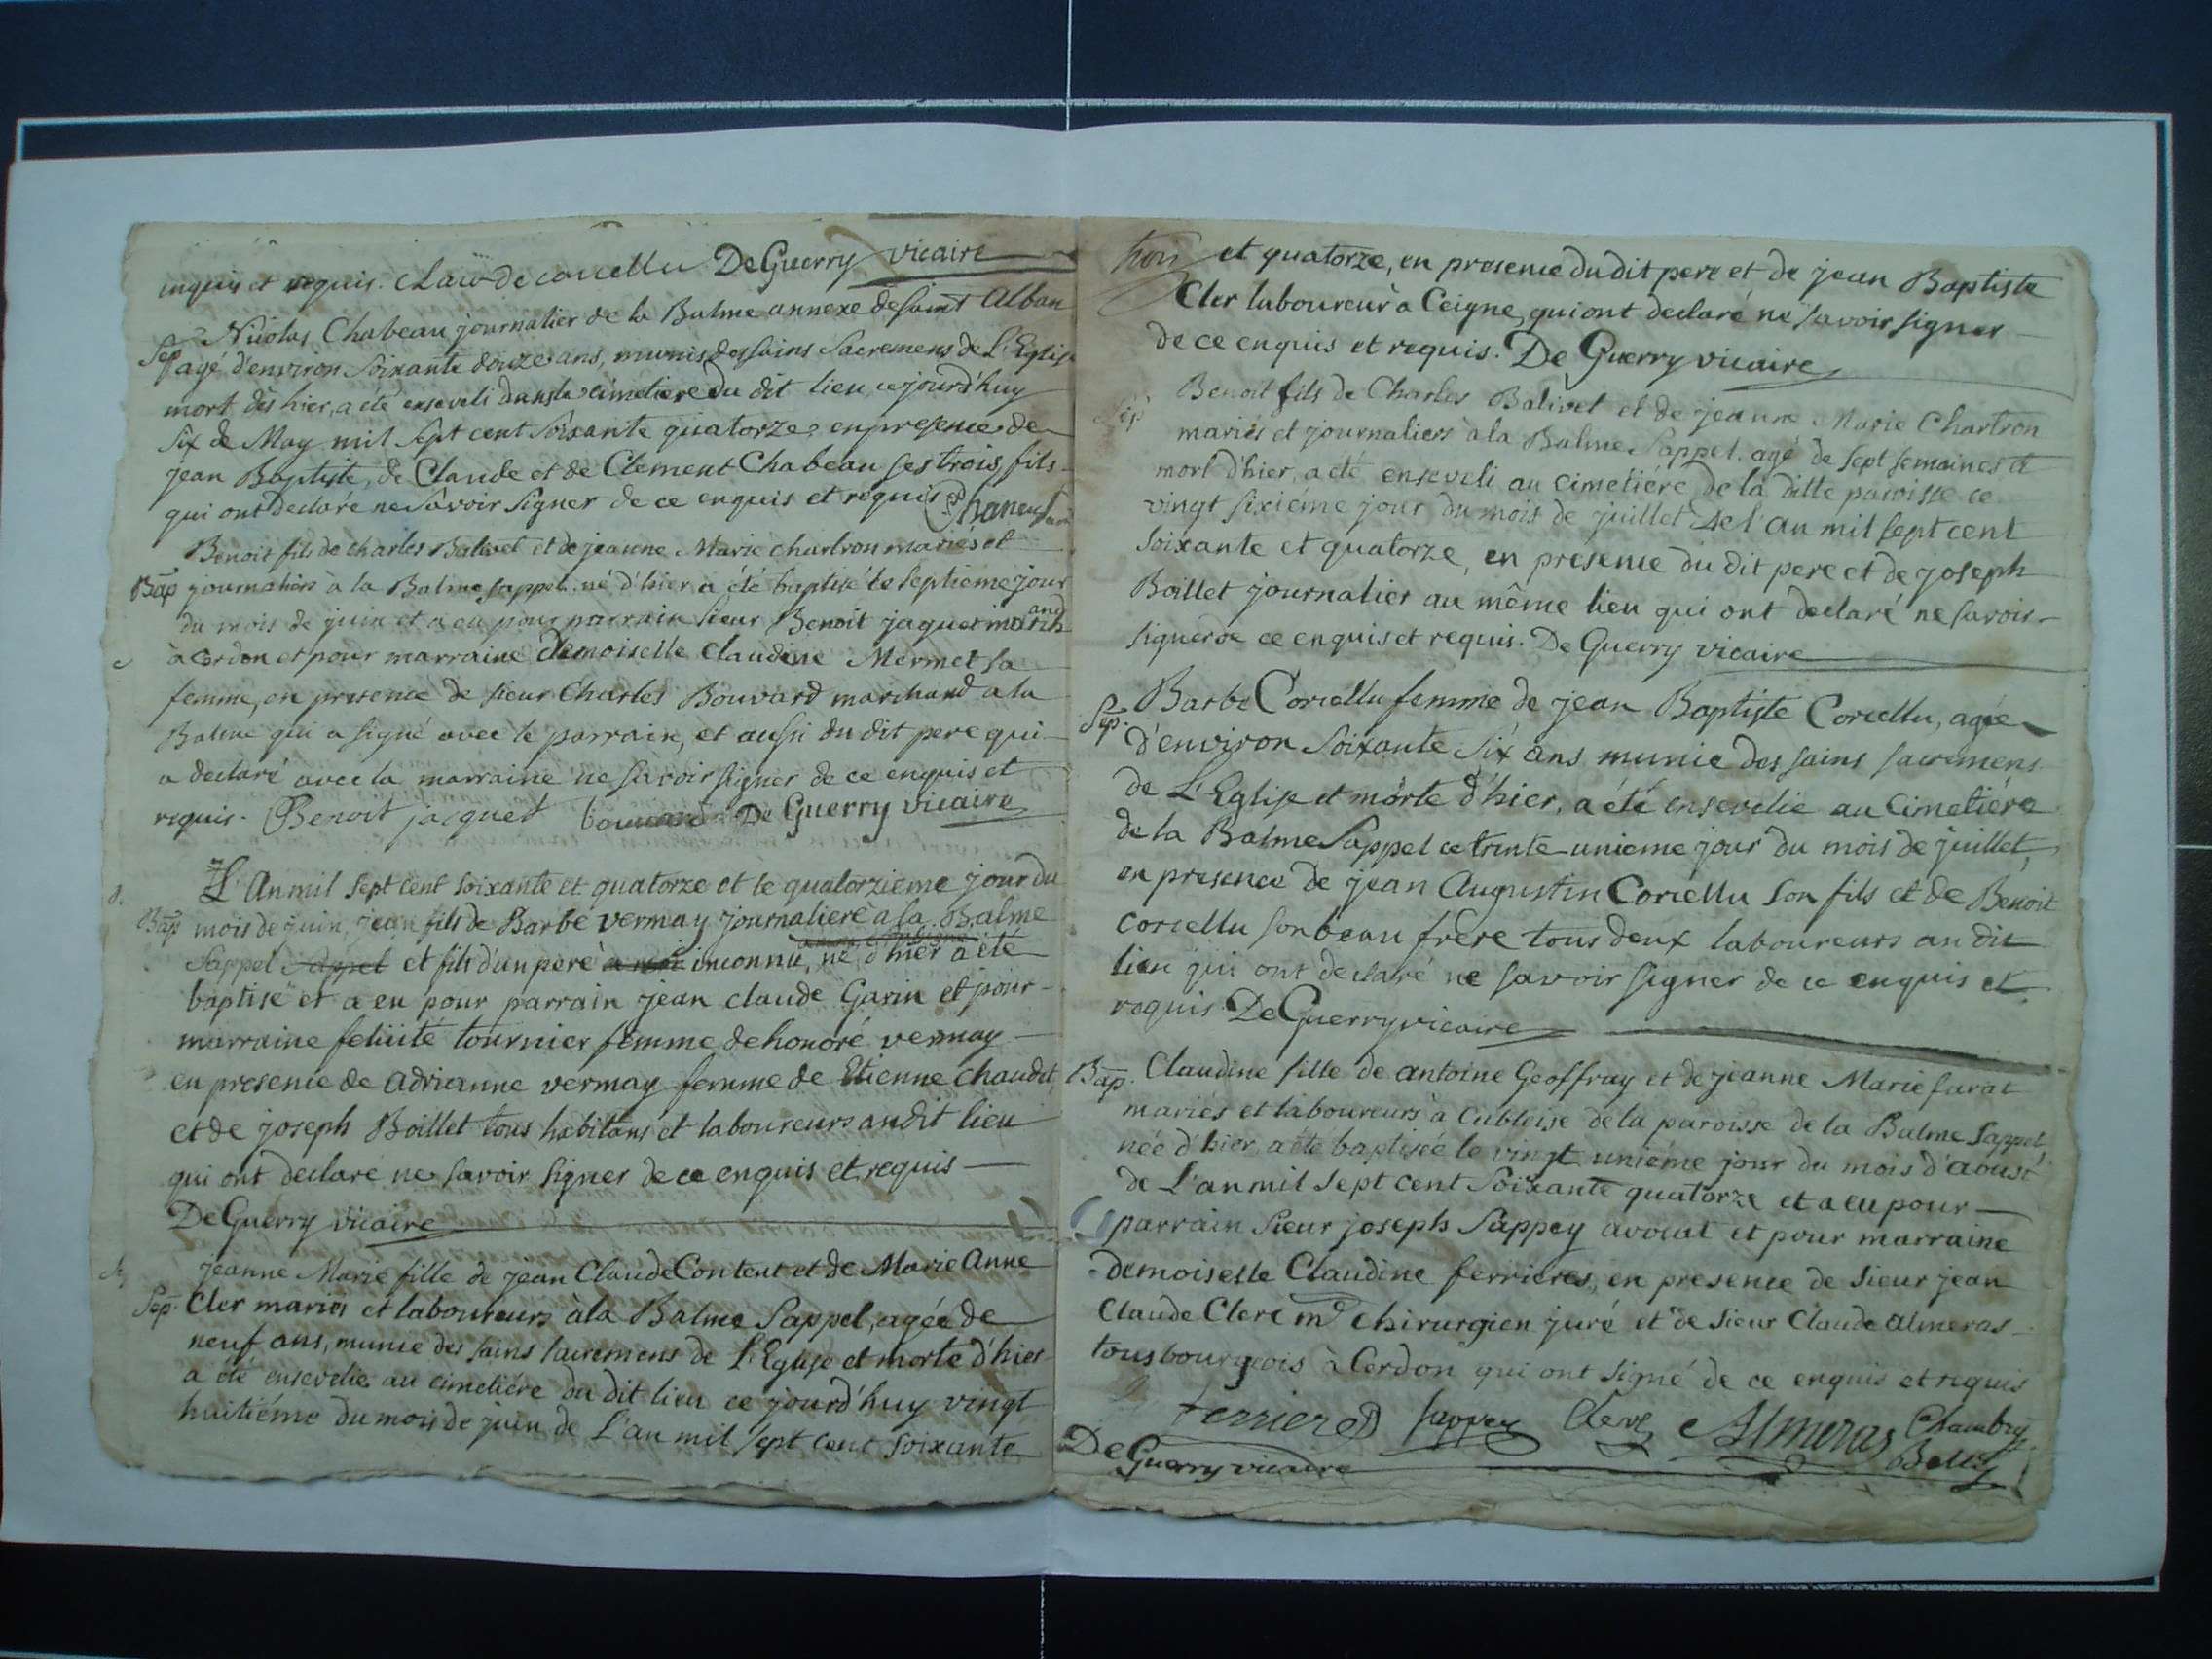 enquis et requis. Claude corcellu De Guerry vicaire
Nicolas Chabeau journalier de la Balme annexe de saint Alban
Sep agé d'environ soixante douze ans, munis des sains sacremens de L'Eglise
mort dès hier, a eté enseveli dans le cimetiere du dit lieu, ce jourd'huy
six de May mil sept cent soixante quatorze en presence de
jean Baptiste, de Claude et de Clement Chabeau ses trois fils
qui ont declaré ne savoir signer de ce enquis et requis
Benoit fils de charles Balivet et de jeanne Marie chartron mariés et
Bap journaliers à la Balme sappel. né d'hier a été baptisé le septieme jour
du mois de juin et a eu pour parrain sieur Benoit jaquet march and
à cerdon et pour marraine demoiselle claudine Mermet sa
femme, en presence de sieur Charles Bouvard marchand a la
Balme qui a signé avec le parrain, et aussi du dit pere qui
a declaré avec la marraine ne savoir signer de ce enquis et
requis. Benoit jacquet bouvard De Guerry vicaire
L'An mil sept cent soixante et quatorze et le quatorzieme jour du
Bap mois de juin, jean fils de Barbe vermay journaliere à la Balme
Sappel Sappel et fils d'un pere inconnu, né d'hier a été
baptisé et a eu pour parrain jean claude Garin et pour
marraine felicité tournier femme de honoré vermay
en presence de adrianne vermay femme de Etienne chaudet
et de joseph Boillet tous habitans et laboureurs au dit lieu
qui ont declaré ne savoir signer de ce enquis et requis
De Guerry vicaire
jeanne Marie fille de jean Claude Content et de Marie Anne
Sep. Cler mariés et laboureurs à la Balme Sappel, agée de
neuf ans, munie des sains sacremens de L'Eglise et morte d'hier
a été ensevelie au cimetiére du dit lieu ce jourd'huy vingt
huitiéme du mois de juin de L'an mil sept cent soixante
et quatorze, en presence du dit pere et de jean Baptiste
Cler laboureur à Ceigne, qui ont declaré ne savoir signer
de ce enquis et requis. De Guerry vicaire
Benoit fils de Charles Balivet et de jeanne Marie Chartron
Sep mariés et journaliers à la Balme Sappel. agé de sept semaines et
mort d'hier, a été enseveli au cimetiére de la ditte paroisse ce
vingt sixiéme jour du mois de juillet de l'an mil sept cent
soixante et quatorze, en présence du dit pere et de joseph
Boillet journalier au même lieu qui ont declaré ne savoir
signer de ce enquis et requis. De Guerry vicaire
Barbe Corcellu femme de jean Baptiste Corcellu, agée
Sep. d'environ soixante six ans munie des sains sacremens
de L'Eglise et morte d'hier, a été ensevelie au Cimetiére
de la Balme Sappel ce trente unieme jour du mois de juillet,
en presence de jean Augustin Corcellu son fils et de Benoit
corcellu son beau frere tous deux laboureurs au dit
lieu qui ont declaré ne savoir signer de ce enquis et
requis De Guerry vicaire
Bap. Claudine fille de antoine Geoffray et de jeanne Marie furat
mariés et laboureurs à Cubloise de la paroisse de la Balme Sappel,
née d'hier, a été baptisée le vingt uniéme jour du mois d'aoust
de L'an mil sept cent soixante quatorze et a eu pour
parrain Sieur joseph Sappey avocat et pour marraine
demoiselle Claudine ferrieres, en presence de sieur jean
Claude Clerc md chirurgien juré et de sieur Claude almeras
tous bourgeois à Cerdon qui ont signé de ce enquis et requis
ferrieres Sappey Clerc Almeras Chambry
De Guerry vicaire